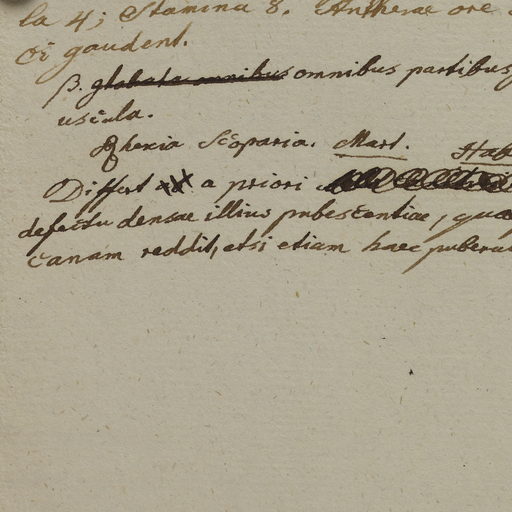 la 4; Stamina 8. Antherae ore
ci gaudent.
β. globata omnibus omnibus partibus
uscula.
Rhexia Scoparia. Mart. Hab
Differt a priori
defectu densae illius pubescentiae, quae
canam reddit, etsi etiam haec puberu